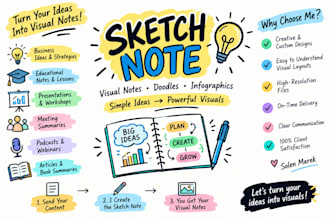 Turn Your Ideas
Into Visual Notes!
Business
Ideas & Strategies
Educational Notes
& Lessons
Presentations
& Workshops
Meeting
Summaries
Podcasts &
Webinars
Articles &
Book Summaries
SKETCH
NOTE
Visual Notes • Doodles • Infographics
Simple Ideas → Powerful Visuals
BIG
IDEAS
PLAN
CREATE
GROW
Why Choose Me?
Creative &
Custom Designs
Easy to Understand
Visual Layouts
High-Resolution
Files
On-Time Delivery
Clear Communication
100% Client
Satisfaction
Salen Marek
1. Send Your
Content
2. I Create
the Sketch Note
3. You Get Your
Visual Notes
Let's turn your
ideas into visuals!